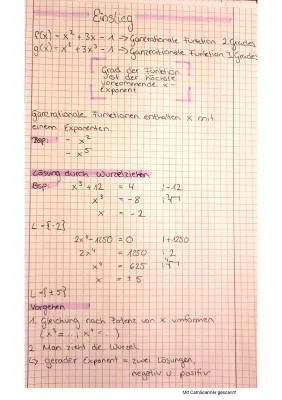 Einstieg
f(x) = x² + 3x - 1 → Ganzrationale Funktion 2. Grades
g(x) = x² + 3x³ - 1 → Ganzrationale Funktion 3. Grades
Grad der Funktion
ist der höchste
vorkommende x-
Exponent
Ganzrationale Funktionen enthalten x mit
einem Exponenten.
Bsp: - x²
- x⁵
Lösung durch Wurzelziehen
Bsp: x³ + 12 = 4 | -12
x³ = -8 | ³√
x = -2
L = {-2}
2x⁴ - 1250 = 0 | + 1250
2x⁴ = 1250 | : 2
x⁴ = 625 | ⁴√
x = ± 5
L = {± 5}
Vorgehen
1. Gleichung nach Potenz von x umformen
(x³ = ..., x⁴ = ...)
2. Man zieht die Wurzel
↳ gerader Exponent = zwei Lösungen,
negativ u. positiv
Mit CamScanner gescannt